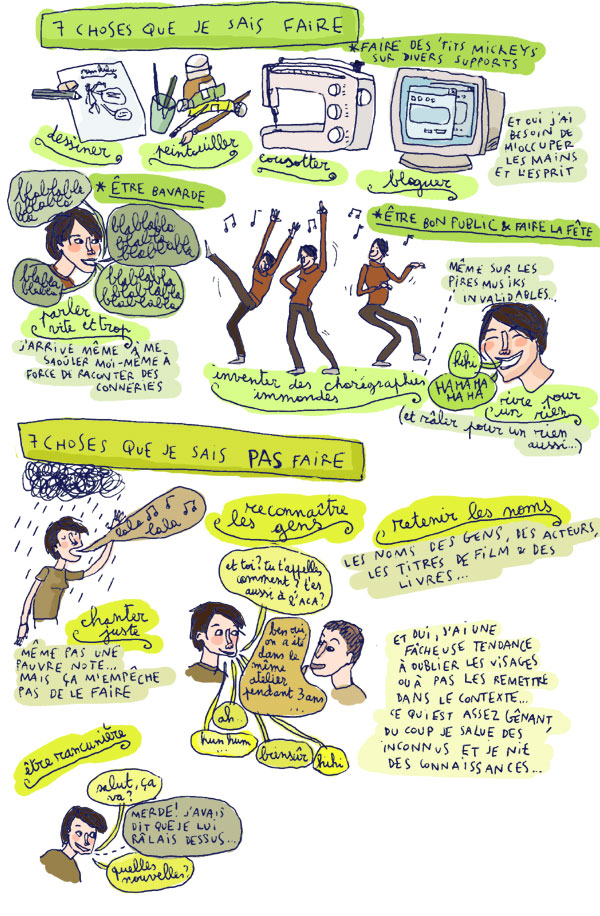 7 CHOSES QUE JE SAIS FAIRE
*FAIRE DES 'TITS MICKEYS
SUR DIVERS SUPPORTS
dessiner
peintouiller
cousotter
bloguer
ET OUI J'AI
BESOIN DE
M'OCCUPER
LES MAINS
ET L'ESPRIT
*ÊTRE BAVARDE
blablabla
blablabla
blablabla
bla
blablabla
blablabla
blablabla
blablabla
blabla
blabla
blabla
blablabla
blablabla
blablabla
blablabla
parler
vite et trop
J'ARRIVE MÊME À ME
SAOÛLER MOI-MÊME À
FORCE DE RACONTER DES
CONNERIES
*ÊTRE BON PUBLIC & FAIRE LA FÊTE
inventer des chorégraphies
immondes
MÊME SUR LES
PIRES MUSIKS
INVALIDABLES...
hihi
HA HA HA
HA HA
rire pour
un rien
(et râlir pour un rien
aussi...)
7 CHOSES QUE JE SAIS PAS FAIRE
lala
lala
chanter
juste
MÊME PAS UNE
PAUVRE NOTE...
MAIS ÇA M'EMPÊCHE
PAS DE LE FAIRE
reconnaître
les gens
et toi? tu t'appelles
comment? t'es
aussi à
l'ACA?
ben oui,
on a été
dans le
même
atelier
pendant 3 ans
...
ah...
hum hum
biensûr
hihi
retenir les noms
LES NOMS DES GENS, DES ACTEURS,
LES TITRES DE FILM & DES
LIVRES...
ET OUI, J'AI UNE
FÂCHEUSE TENDANCE
À OUBLIER LES VISAGES
OU À PAS LES REMETTRE
DANS LE CONTEXTE...
CE QUI EST ASSEZ GÊNANT,
DU COUP JE SALUE DES
INCONNUS ET JE NIE
DES CONNAISSANCES...
être rancunière
salut, ça
va?
MERDE! J'AVAIS
DIT QUE JE LUI
RÂLAIS DESSUS...
quelles
nouvelles?